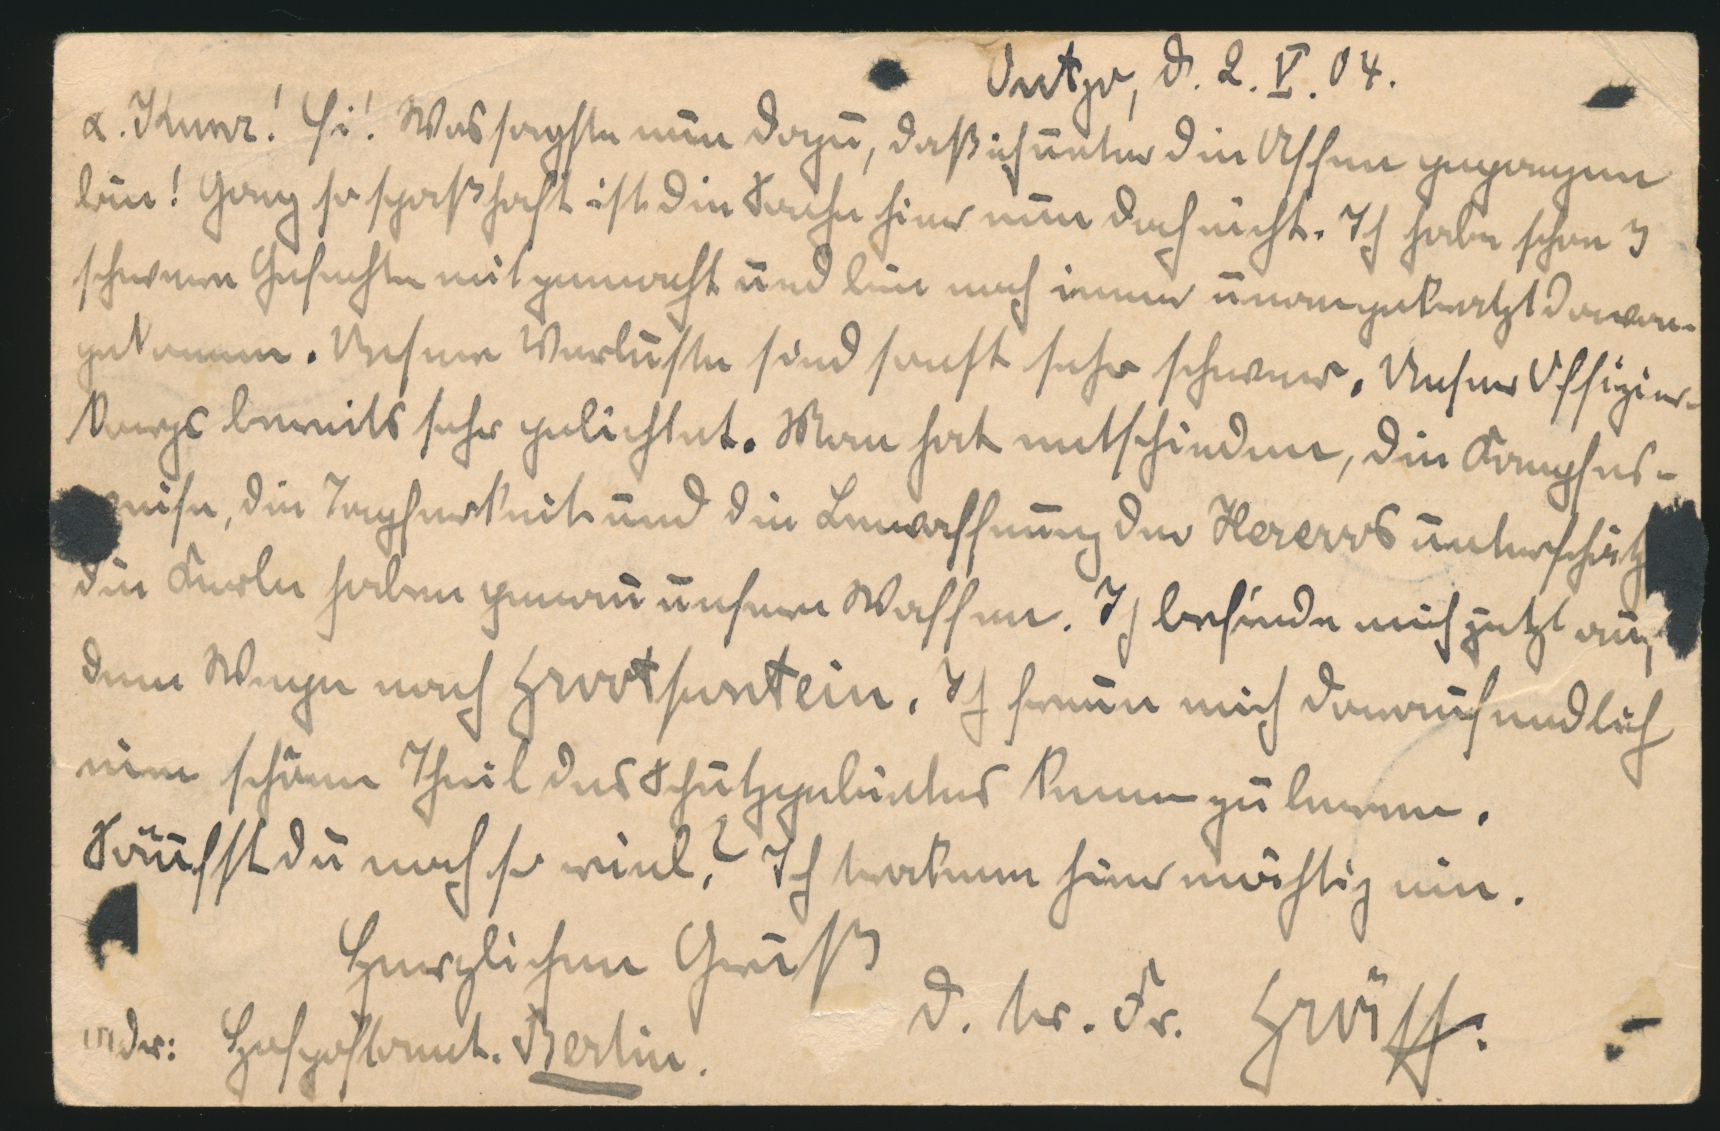 Outjo, d. 2. V. 04.
L. Knorr! Hi! Was sagste nun dazu, daß ich unter die Affen gegangen
bin! Ganz so spaßhaft ist die Sache hier nun doch nicht. Ich habe schon 3
schwere Gefechte mitgemacht und bin noch immer unangekratzt davon-
gekommen. Unsere Verluste sind sonst sehr schwer. Unser Offizier-
korps bereits sehr gelichtet. Man hat entschieden, die Kampfes-
weise, die Tapferkeit und die Bewaffnung der Hereros unterschätzt
die Kerle haben genau unsere Waffen. Ich befinde mich jetzt auf
dem Wege nach Grootfontein. Ich freue mich darauf endlich
einen schönen Theil des Schutzgebietes kennen zu lernen.
Säufst du noch so viel? Ich trockne hier mächtig ein.
Herzlichen Gruß
d. tr. Fr. Gräff.
Hofpostamt. Berlin.